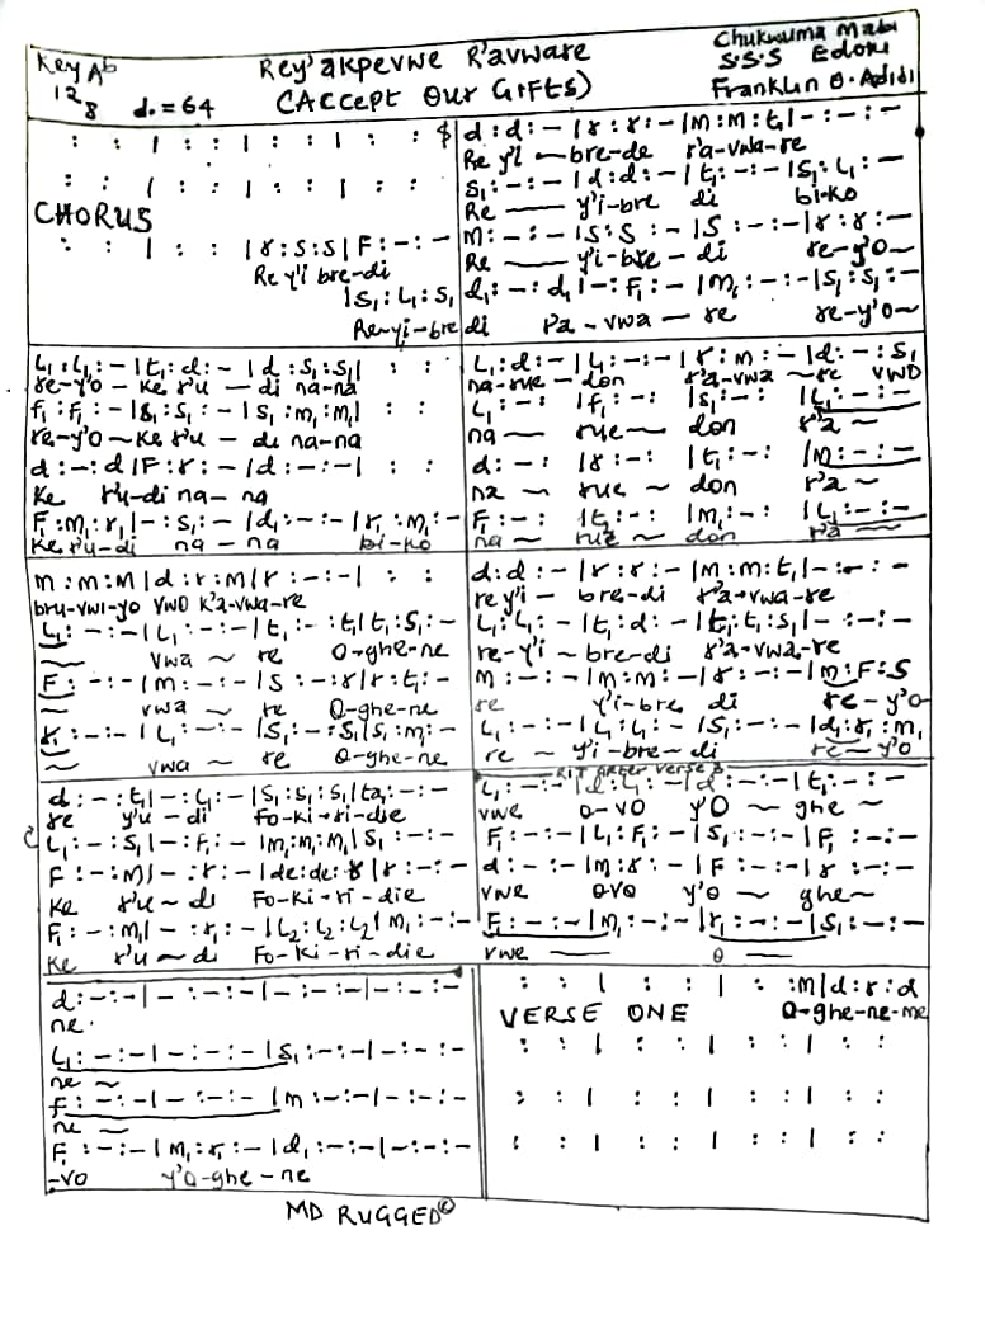 Key Ab
12 8 d. = 64
Rey'akpevwe R'avware
(ACCept Our GIFTS)
Chukwuma Madu
S.S.S Edoni
Franklin O. Adidi
: : | : : | : : | : : $
: : | : : | : : | : :
CHORUS
: : | : : | r : s : s | F : - : -
Re y'i bre-di
| s₁ : L₁ : s₁
Re-yi-bre
d : d : - | r : r : - | m : m : t₁ | - : - : -
Re y'i - bre-de r'a-vwa-re
s₁ : - : - | d : d : - | t₁ : - : - | s₁ : L₁ : -
Re — y'i-bre di bi-ko
M : - : - | s : s : - | s : - : - | r : r : -
Re — y'i-bre - di re-y'o~
d₁ : - : d₁ | - : F₁ : - | m₁ : - : - | s₁ : s₁ : -
di r'a - vwa - re re-y'o~
L₁ : L₁ : - | t₁ : d : - | d : s₁ : s₁ | : :
re-y'o - ke r'u - di na-na
f₁ : f₁ : - | s₁ : s₁ : - | s₁ : m₁ : m₁ | : :
re-y'o ~ ke r'u - di na-na
d : - : d | F : r : - | d : - : - | : :
ke r'u-di na-na
F₁ : m₁ : r₁ | - : s₁ : - | d₁ : - : - | r₁ : m₁ : -
ke r'u-di na - na bi-ko
L₁ : d : - | L₁ : - : - | r : m : - | d : - : s₁
na-rue - don r'a-vwa ~ re vwo
L₁ : - : | f₁ : - : | s₁ : - : | L₁ : - : -
na — rue ~ don r'a ~
d : - : | r : - : | t₁ : - : | m : - : -
na ~ rue ~ don r'a ~
F₁ : - : | t₂ : - : | m₁ : - : | L₁ : - : -
na ~ rue ~ don r'a ~
m : m : m | d : r : m | r : - : - | : :
bru-vwi-yo vwo k'a-vwa-re
L₁ : - : - | L₁ : - : - | t₁ : - : t₁ | t₁ : s₁ : -
~ vwa ~ re O-ghe-ne
F : - : - | m : - : - | s : - : r | r : t₁ : -
~ vwa ~ re O-ghe-ne
r₁ : - : - | L₁ : - : - | s₁ : - : s₁ | s₁ : m₁ : -
~ vwa ~ re O-ghe-ne
d : d : - | r : r : - | m : m : t₁ | - : - : -
re y'i - bre-di r'a-vwa-re
L₁ : L₁ : - | t₁ : d : - | t₁ : t₁ : s₁ | - : - : -
re-y'i - bre-di r'a-vwa-re
m : - : - | m : m : - | r : - : - | m : F : s
re y'i-bre di re-y'o-
L₁ : - : - | L₁ : L₁ : - | s₁ : - : - | d₁ : r₁ : m₁
re ~ y'i-bre-di re-y'o
d : - : t₁ | - : L₁ : - | s₁ : s₁ : s₁ | ta₁ : - : -
re y'u - di Fo-ki-ri-die
L₁ : - : s₁ | - : F₁ : - | m₁ : m₁ : m₁ | s₁ : - : -
F : - : m | - : r : - | de : de : r | r : - : -
ke r'u ~ di Fo-ki-ri-die
F₁ : - : m₁ | - : r₁ : - | L₂ : L₂ : L₂ | m₁ : - : -
ke r'u ~ di Fo-ki-ri-die
RIT After Verse 3
L₁ : - : - | d : L₁ : - | d : - : - | t₁ : - : -
vwe O-vo y'O ~ ghe ~
F₁ : - : - | L₁ : F₁ : - | s₁ : - : - | F₁ : - : -
d : - : - | m : r : - | F : - : - | r : - : -
vwe ovo y'o ~ ghe ~
F₁ : - : - | m₁ : - : - | r₁ : - : - | s₁ : - : -
vwe — O —
d : - : - | - : - : - | - : - : - | - : - : -
ne.
L₁ : - : - | - : - : - | s₁ : - : - | - : - : -
ne ~
f : - : - | - : - : - | m : - : - | - : - : -
ne ~
F₁ : - : - | m₁ : r₁ : - | d₁ : - : - | - : - : -
-vo y'O-ghe-ne
: : | : : | : : m | d : r : d
VERSE ONE O-ghe-ne-me
: : | : : | : : | : :
: : | : : | : : | : :
: : | : : | : : | : :
MD RUGGED©